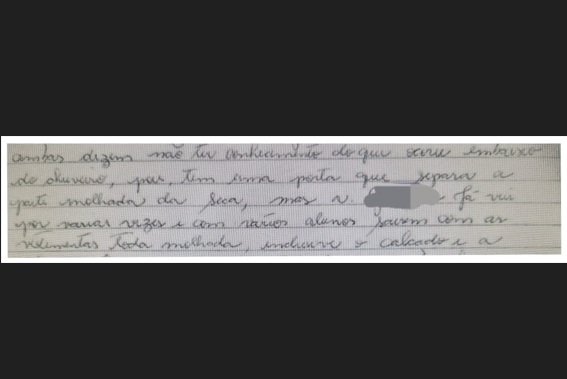 ambas dizem não ter conhecimento do que ocorre embaixo
do chuveiro, pois, tem uma porta que separa a
parte molhada da seca, mas a. já vi
por varias vezes e com vários alunos sairem com as
vestimentas toda molhada, inclusive o calcado e a